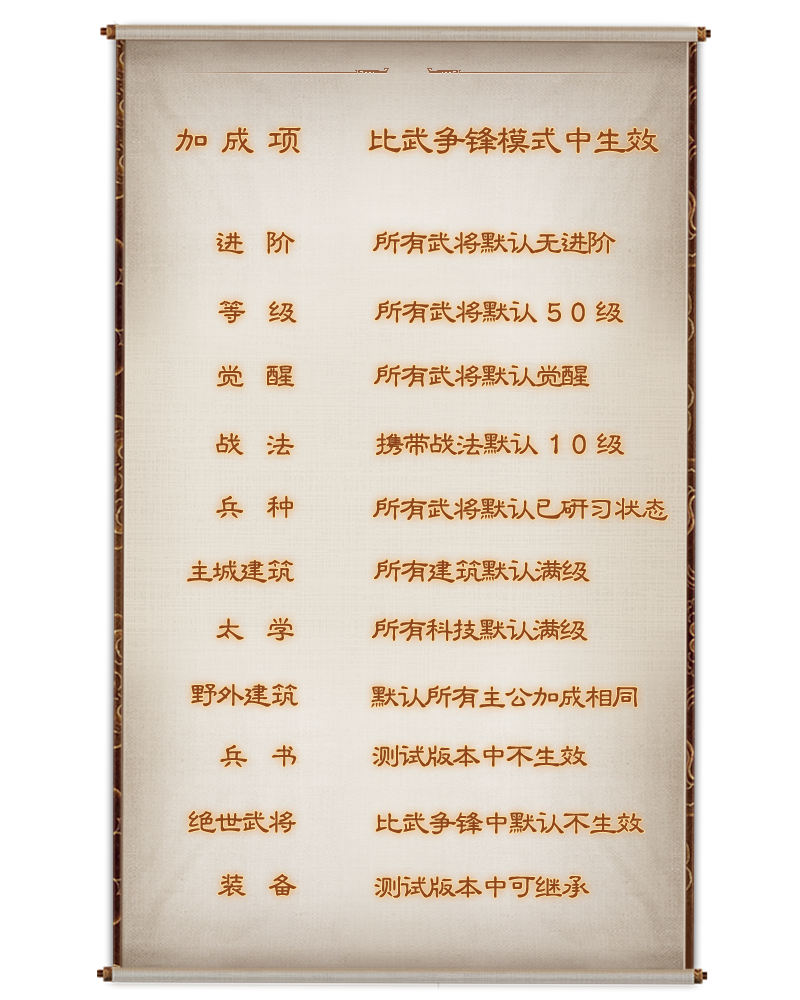 加成项 比武争锋模式中生效
进阶 所有武将默认无进阶
等级 所有武将默认50级
觉醒 所有武将默认觉醒
战法 携带战法默认10级
兵种 所有武将默认已研习状态
主城建筑 所有建筑默认满级
太学 所有科技默认满级
野外建筑 默认所有主公加成相同
兵书 测试版本中不生效
绝世武将 比武争锋中默认不生效
装备 测试版本中可继承